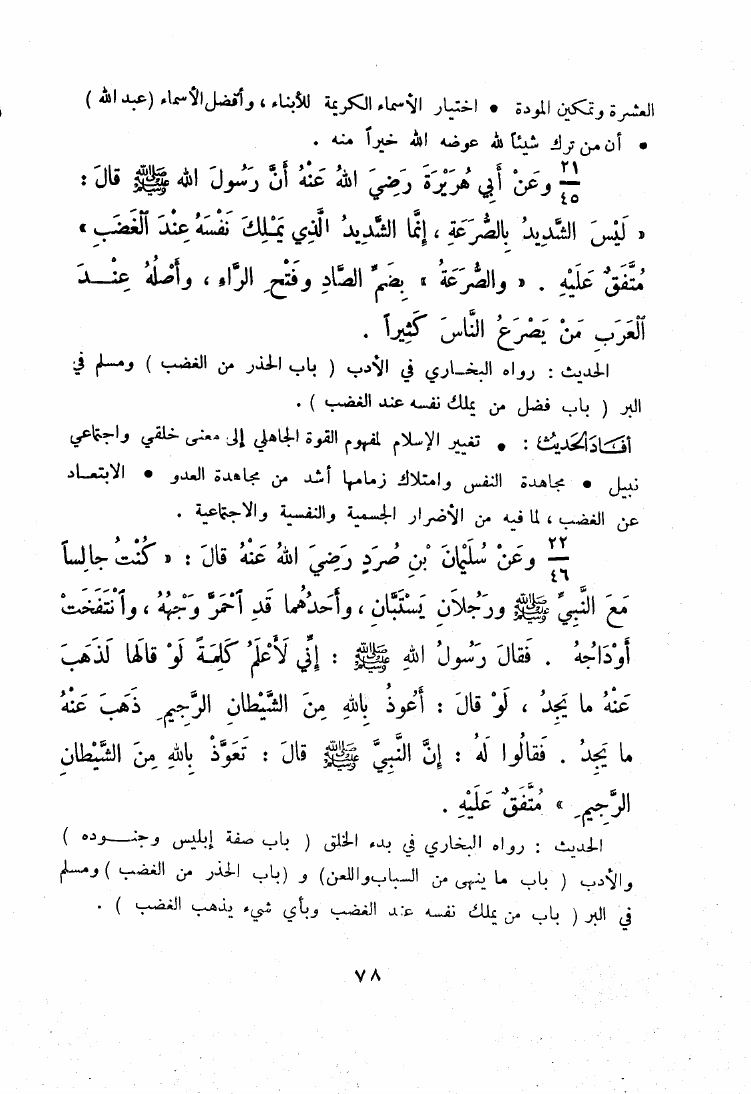 العشرة وتمكين المودة • اختيار الأسماء الكريمة للأبناء ، وأفضل الأسماء (عبد الله )
• أن من ترك شيئاً لله عوضه الله خيراً منه .
٢١/٤٥ وعَنْ أَبي هُرَيْرَةَ رَضِيَ اللهُ عَنْهُ أَنَّ رَسُولَ الله ﷺ قالَ :
« لَيْسَ الشَّدِيدُ بِالصُّرَعَةِ ، إِنَّمَا الشَّدِيدُ الَّذِي يَمْلِكُ نَفْسَهُ عِنْدَ الْغَضَبِ »
مُتَّفَقٌ عَلَيْهِ . « والصُّرَعَةُ » بِضَمِّ الصَّادِ وفَتْحِ الرَّاءِ ، وأَصْلُهُ عِنْــدَ
الْعَرَبِ مَنْ يَصْرَعُ النَّاسَ كَثِيراً .
الحديث : رواه البخــاري في الأدب ( باب الحذر من الغضب ) ومسلم في
البر ( باب فضل من يملك نفسه عند الغضب ) .
أفَــادَ الحَديثُ : • تغيير الإسلام لمفهوم القوة الجاهلي إلى معنى خلقي واجتماعي
نبيل • مجاهدة النفس وامتلاك زمامها أشد من مجاهدة العدو • الابتعــاد
عن الغضب ، لما فيه من الأضرار الجسمية والنفسية والاجتماعية .
٢٢/٤٦ وعَنْ سُلَيْمَانَ بْنِ صُرَدٍ رَضِيَ اللهُ عَنْهُ قَالَ : « كُنْتُ جالِساً
مَعَ النَّبِيِّ ﷺ ورَجُلاَنِ يَسْتَبَّانِ ، وأَحَدُهُما قَدِ احْمَرَّ وَجْهُهُ ، وانْتَفَخَتْ
أَوْدَاجُهُ . فَقالَ رَسُولُ اللهِ ﷺ : إِنِّي لَأَعْلَمُ كَلِمَةً لَوْ قالَها لَذَهَبَ
عَنْهُ ما يَجِدُ ، لَوْ قالَ : أَعُوذُ بِاللهِ مِنَ الشَّيْطانِ الرَّجيمِ ذَهَبَ عَنْهُ
ما يَجِدُ . فَقالُوا لَهُ : إِنَّ النَّبِيَّ ﷺ قالَ : تَعَوَّذْ بِاللهِ مِنَ الشَّيْطانِ
الرَّجيمِ » مُتَّفَقٌ عَلَيْهِ .
الحديث : رواه البخاري في بدء الخلق ( باب صفة إبليس وجنــوده )
والأدب ( باب ما ينهى من السباب واللعن ) و ( باب الحذر من الغضب ) ومسلم
في البر ( باب من يملك نفسه عند الغضب وبأي شيء يذهب الغضب ) .
٧٨